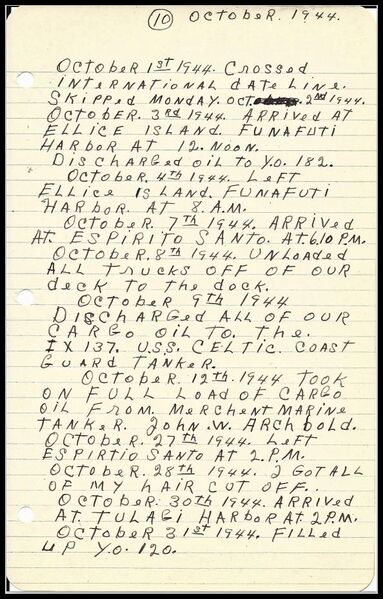 (10) OCTOBER. 1944.
OCTOBER 1ST 1944. CROSSED
INTERNATIONAL DATE LINE.
SKIPPED MONDAY. OCT. 2nd 1944.
OCTOBER. 3rd 1944. ARRIVED AT
ELLICE ISLAND. FUNAFUTI
HARBOR AT 12. NOON.
DISCHARGED OIL TO Y.O. 182.
OCTOBER. 4th 1944. LEFT
ELLICE ISLAND. FUNAFUTI
HARBOR. AT 8. A.M.
OCTOBER. 7th 1944. ARRIVED
AT. ESPIRITO SANTO. AT. 6.10 P.M.
OCTOBER. 8th 1944. UNLOADED
ALL TRUCKS OFF OF OUR
deck TO THE dock.
OCTOBER 9th 1944
DISCHARGED ALL OF OUR
CARGO OIL TO. THE.
IX 137. U.S.S. CELTIC. COAST
GUARD TANKER.
OCTOBER. 12th. 1944 TOOK
ON FULL LOAD OF CARGO
OIL FROM. MERCHENT MARINE
TANKER. JOHN. W. ARCHBOLD.
OCTOBER. 27th 1944. LEFT
ESPIRTIO SANTO AT 2. P.M.
OCTOBER. 28th 1944. I GOT ALL
OF MY HAIR CUT OFF.
OCTOBER. 30th 1944. ARRIVED
AT. TULAGI HARBOR AT. 2 P.M.
OCTOBER 31st 1944. FILLED
UP Y.O. 120.